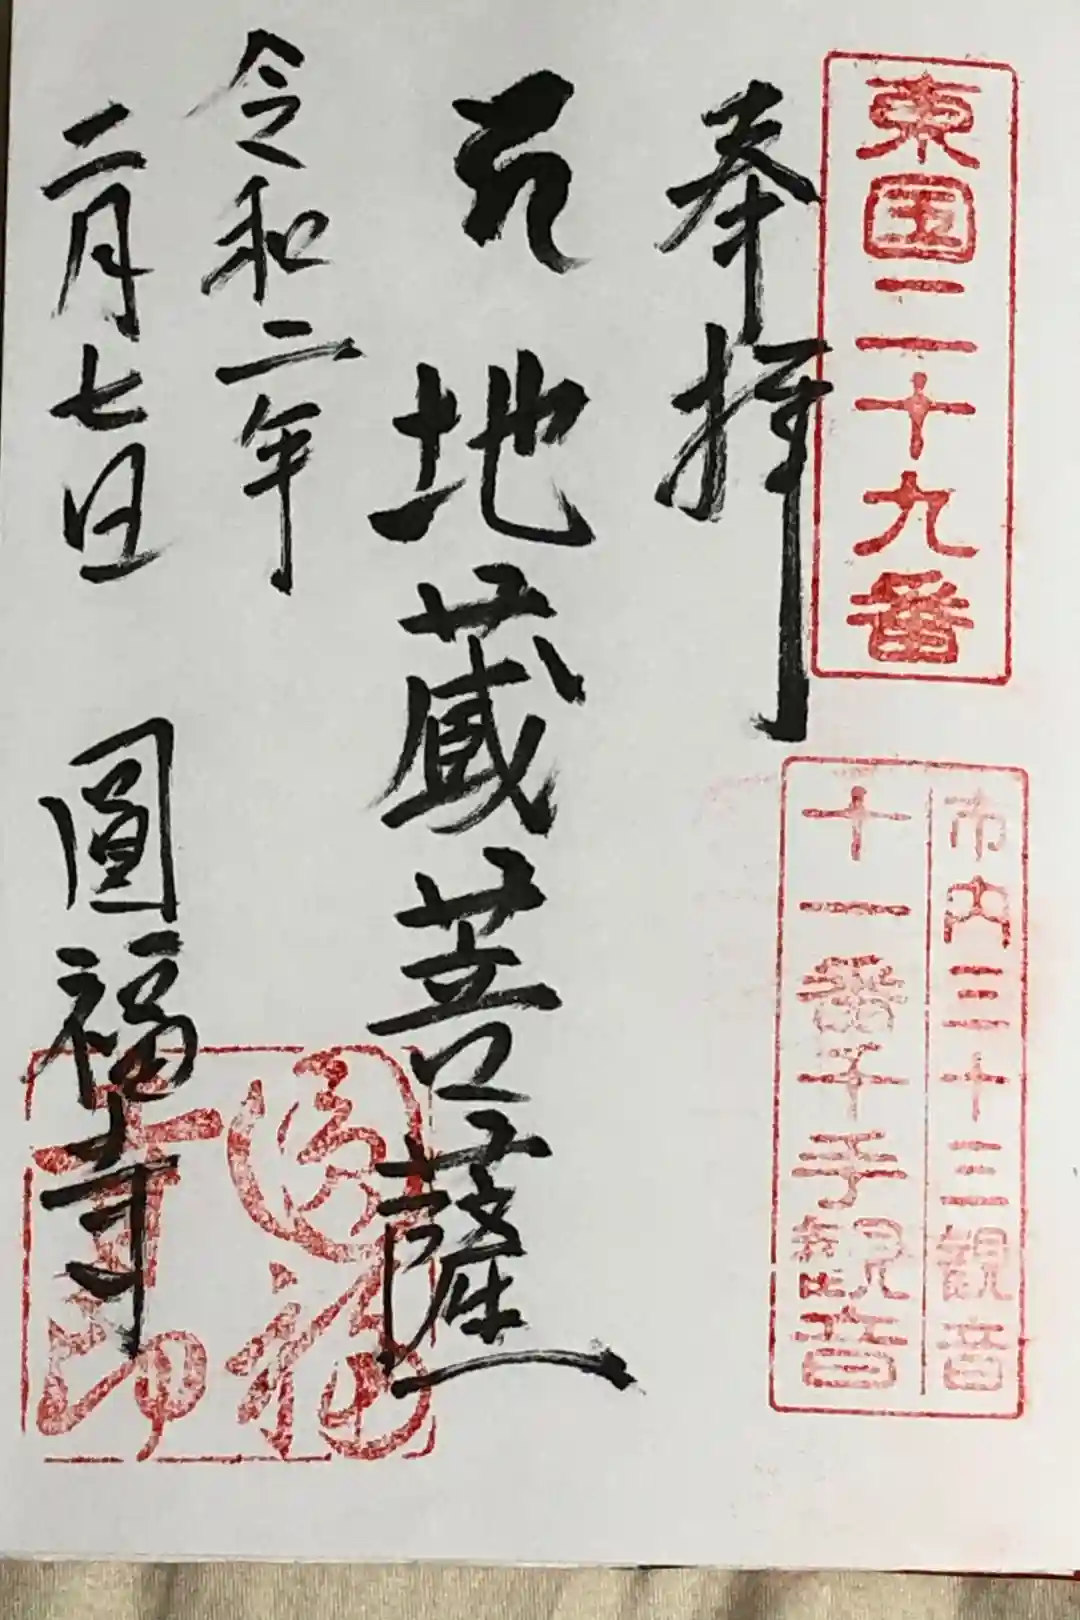 東国二十九番
市内三十三観音
十一番千手観音
奉拝
地蔵菩薩
令和二年
二月七日 圓福寺
圓福
寺印